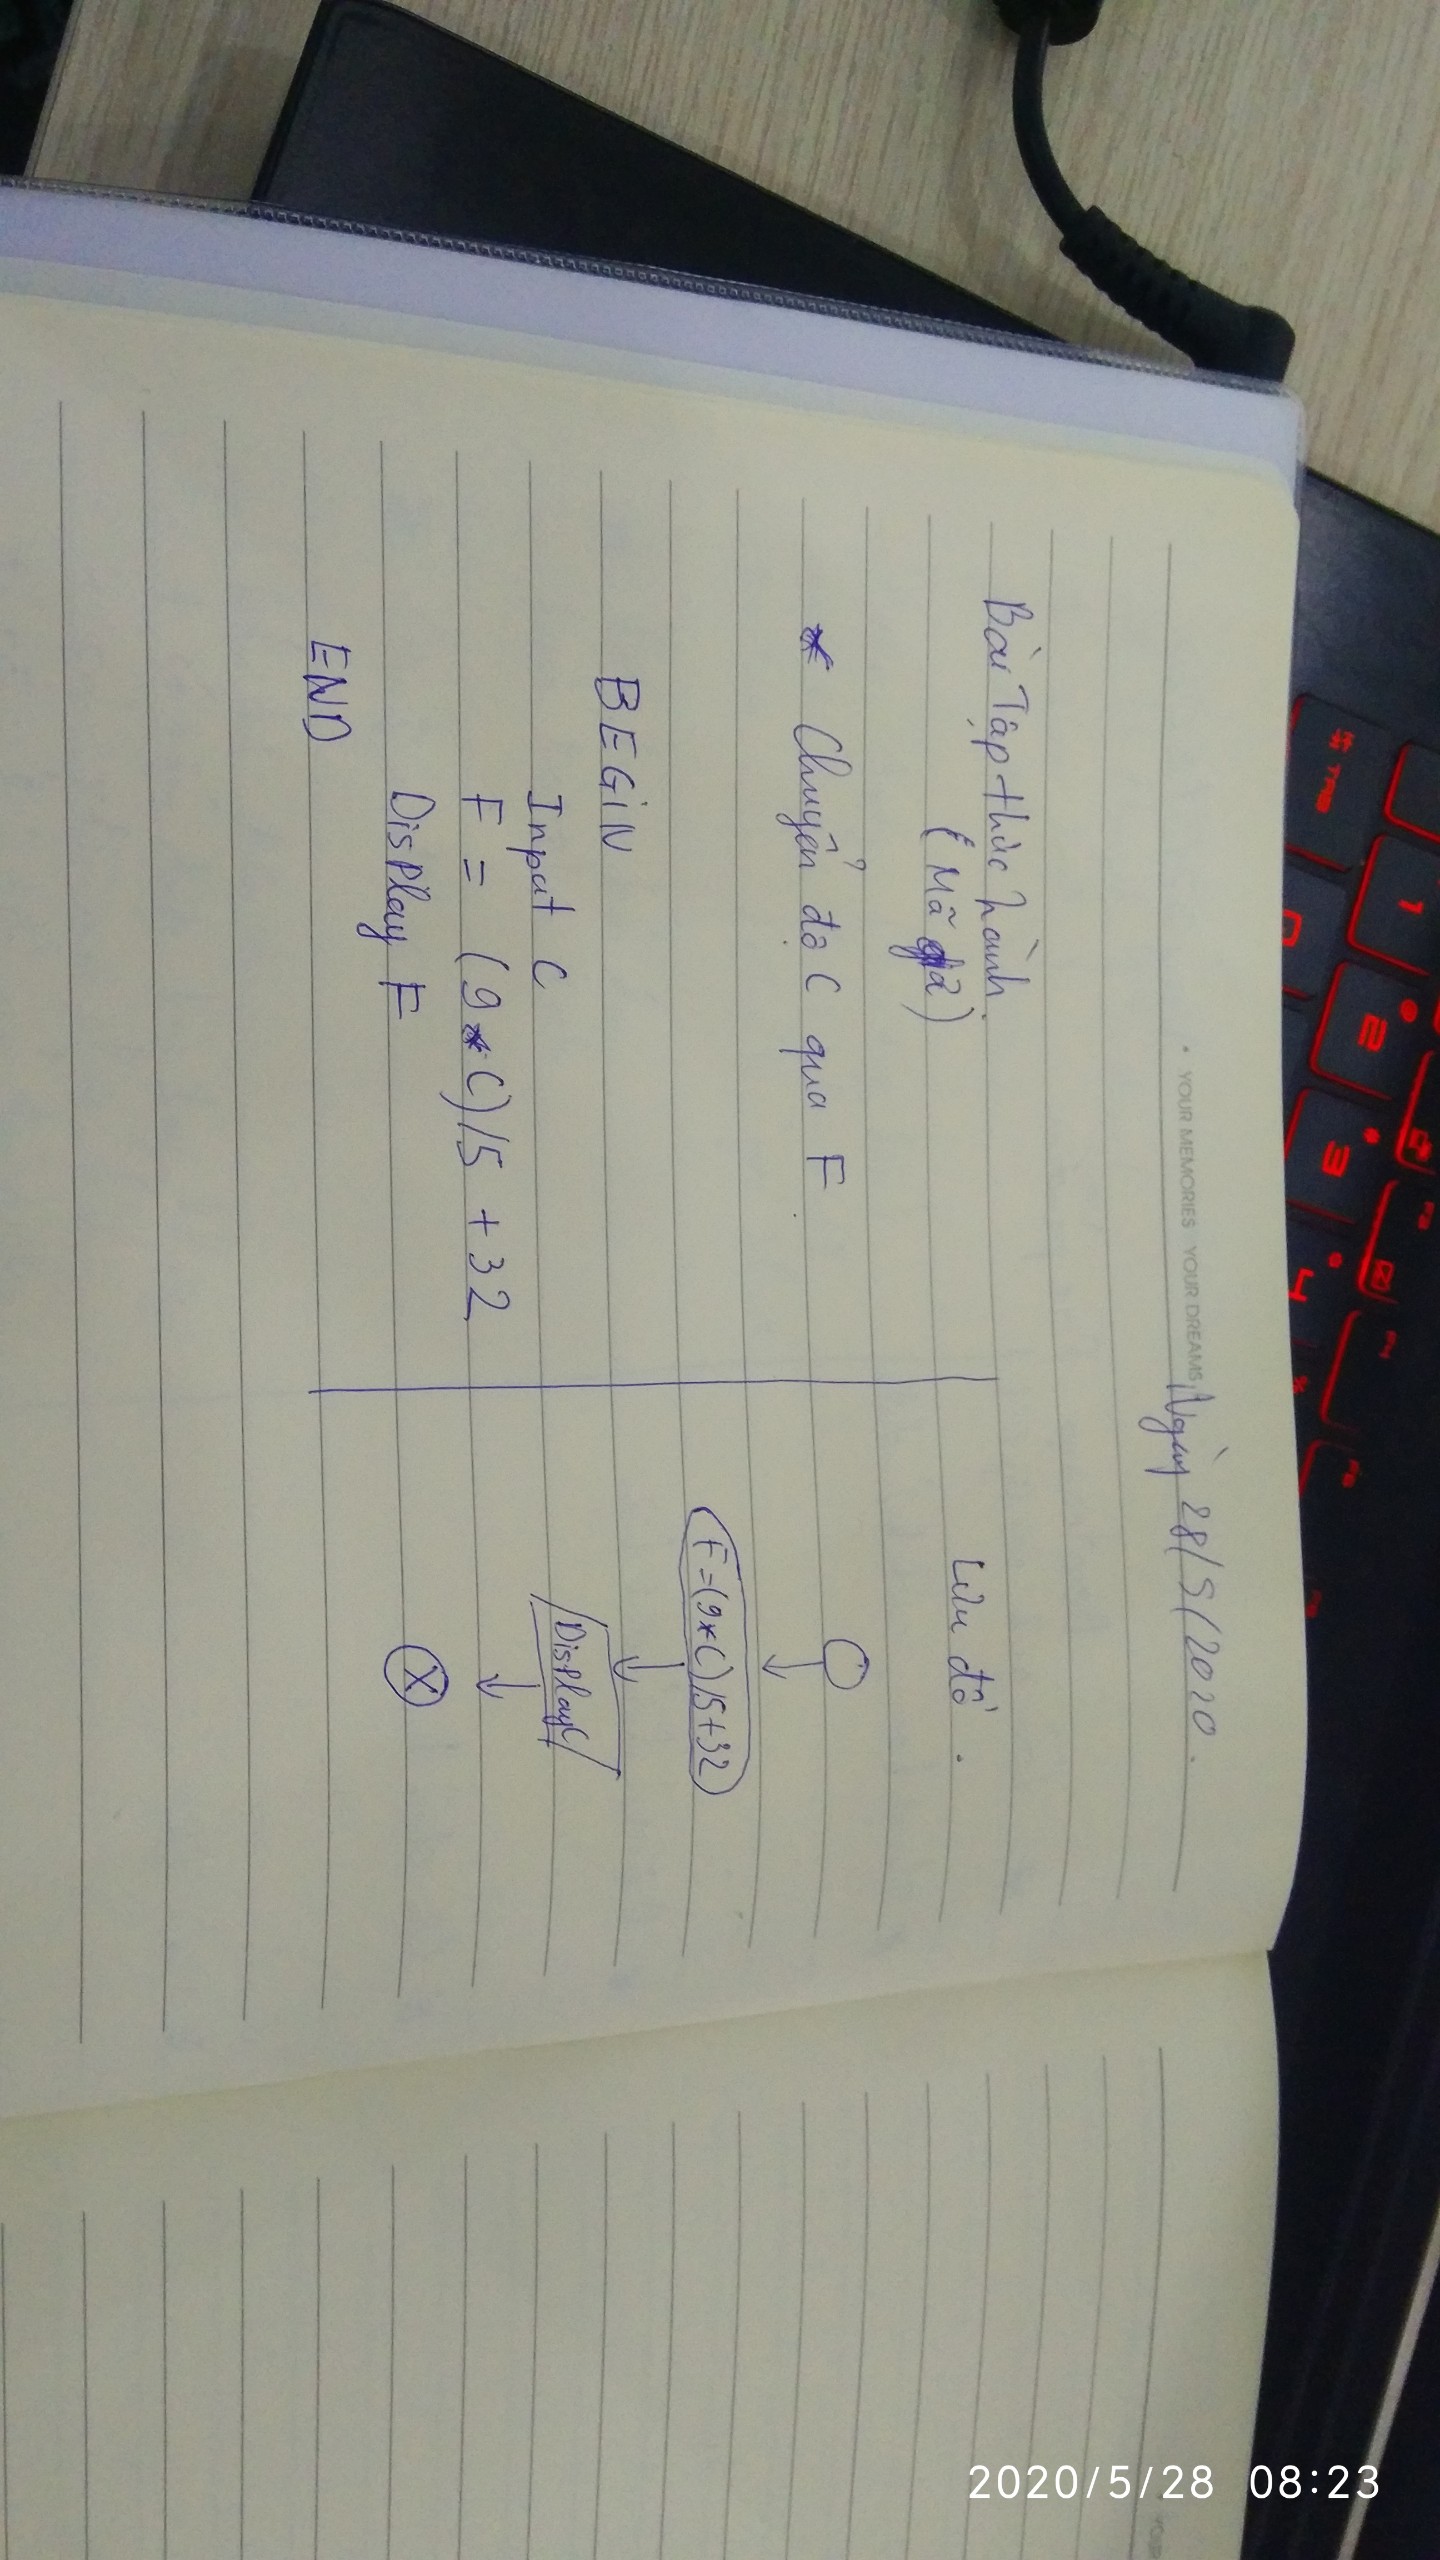 • YOUR MEMORIES YOUR DREAMS
Ngày 28/5/2020.
Bài Tập thức hành
(Mã giả)
* Chuyển độ C qua F
BEGIN
Input C
F = (9*C)/5 +32
Display F
END
Lưu đồ.
F=(9*C)/5+32
Display C
X
TAB
1
2
3
4
2020/5/28 08:23